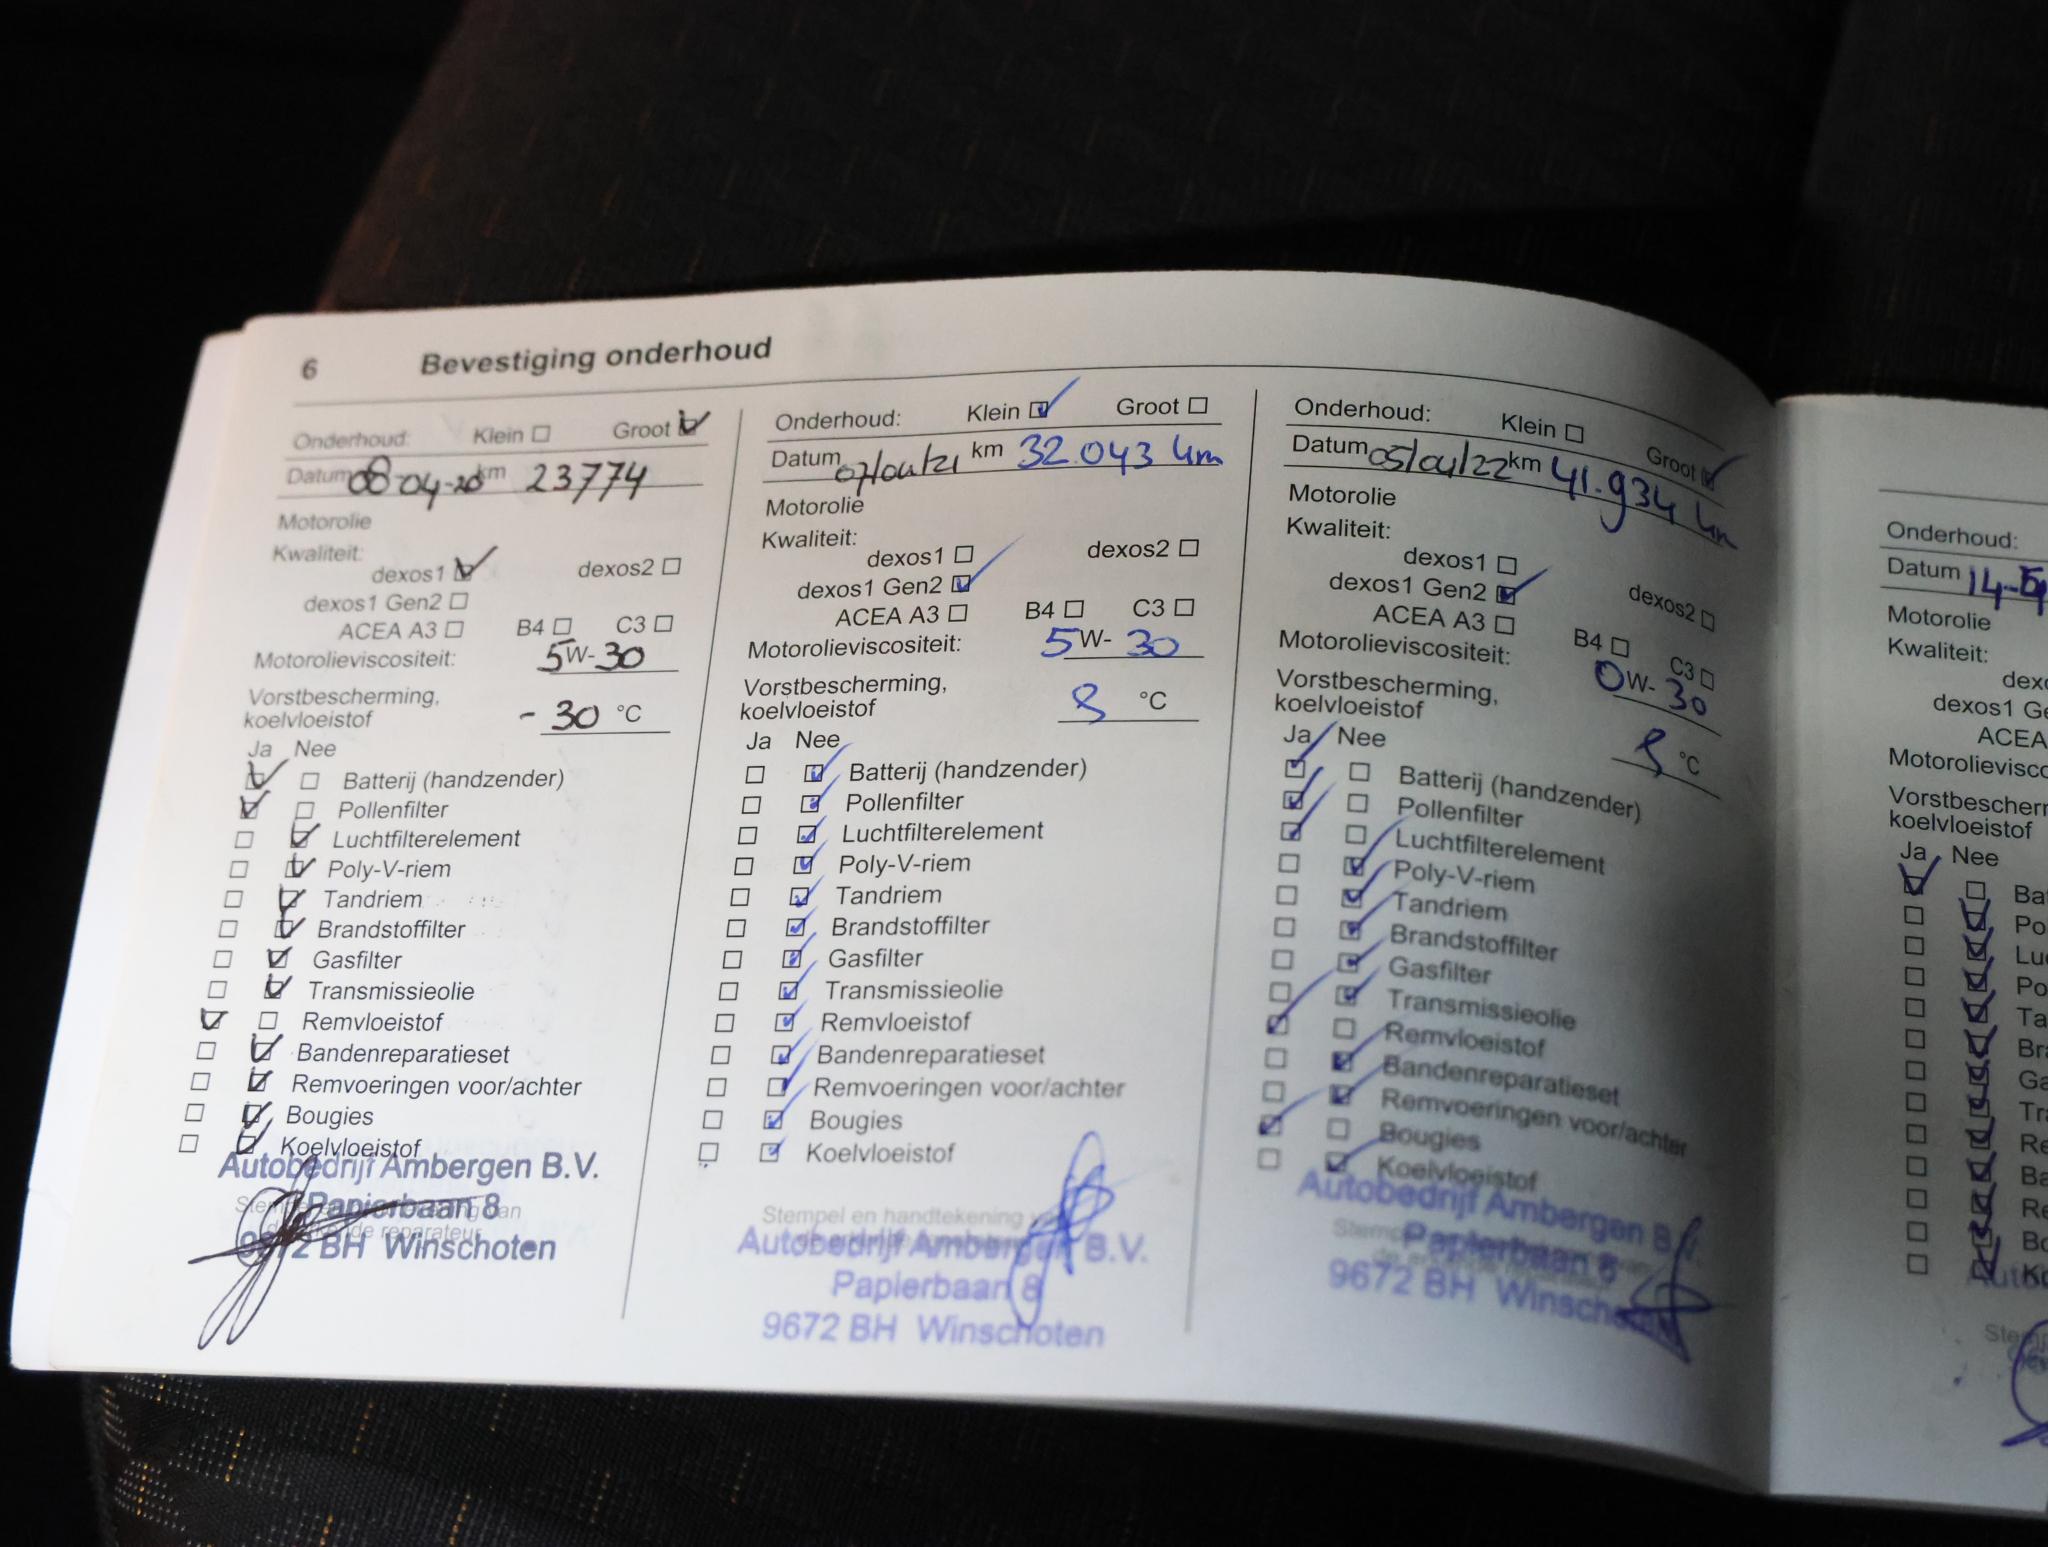 6 Bevestiging onderhoud
Onderhoud: Klein Groot
Datum 08-04-20 km 23774
Motorolie
Kwaliteit:
dexos1 dexos2
dexos1 Gen2
ACEA A3 B4 C3
Motorolieviscositeit: 5W-30
Vorstbescherming,
koelvloeistof -30 °C
Ja Nee
Batterij (handzender)
Pollenfilter
Luchtfilterelement
Poly-V-riem
Tandriem
Brandstoffilter
Gasfilter
Transmissieolie
Remvloeistof
Bandenreparatieset
Remvoeringen voor/achter
Bougies
Koelvloeistof
Autobedrijf Ambergen B.V.
Papierbaan 8
9672 BH Winschoten
Onderhoud: Klein Groot
Datum 07/04/21 km 32.043 km
Motorolie
Kwaliteit:
dexos1 dexos2
dexos1 Gen2
ACEA A3 B4 C3
Motorolieviscositeit: 5W-30
Vorstbescherming,
koelvloeistof °C
Ja Nee
Batterij (handzender)
Pollenfilter
Luchtfilterelement
Poly-V-riem
Tandriem
Brandstoffilter
Gasfilter
Transmissieolie
Remvloeistof
Bandenreparatieset
Remvoeringen voor/achter
Bougies
Koelvloeistof
Stempel en handtekening
Autobedrijf Ambergen B.V.
Papierbaan 8
9672 BH Winschoten
Onderhoud: Klein Groot
Datum 05/04/22 km 41.934 km
Motorolie
Kwaliteit:
dexos1
dexos1 Gen2 dexos2
ACEA A3 B4 C3
Motorolieviscositeit: 0W-30
Vorstbescherming,
koelvloeistof °C
Ja Nee
Batterij (handzender)
Pollenfilter
Luchtfilterelement
Poly-V-riem
Tandriem
Brandstoffilter
Gasfilter
Transmissieolie
Remvloeistof
Bandenreparatieset
Remvoeringen voor/achter
Bougies
Koelvloeistof
Autobedrijf Ambergen B.V.
Papierbaan 8
9672 BH Winschoten
Onderhoud:
Datum 14-
Motorolie
Kwaliteit:
dexo
dexos1 Ge
ACEA
Motorolievisco
Vorstbescherm
koelvloeistof
Ja Nee
Bat
Po
Luc
Po
Ta
Br
Ga
Tr
Re
Ba
Re
Bo
Ko